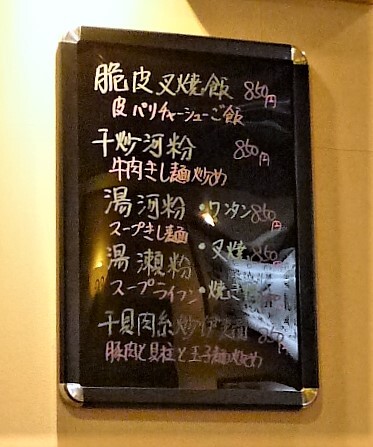 脆皮叉焼飯 850円
皮パリチャーシューご飯
干炒河粉 850円
牛肉きし麺炒め
湯河粉・ワンタン850円
スープきし麺
湯瀬粉・叉焼 850円
スープライフン・焼き
干貝肉糸炒伊麺 850円
豚肉と貝柱と玉子麺炒め